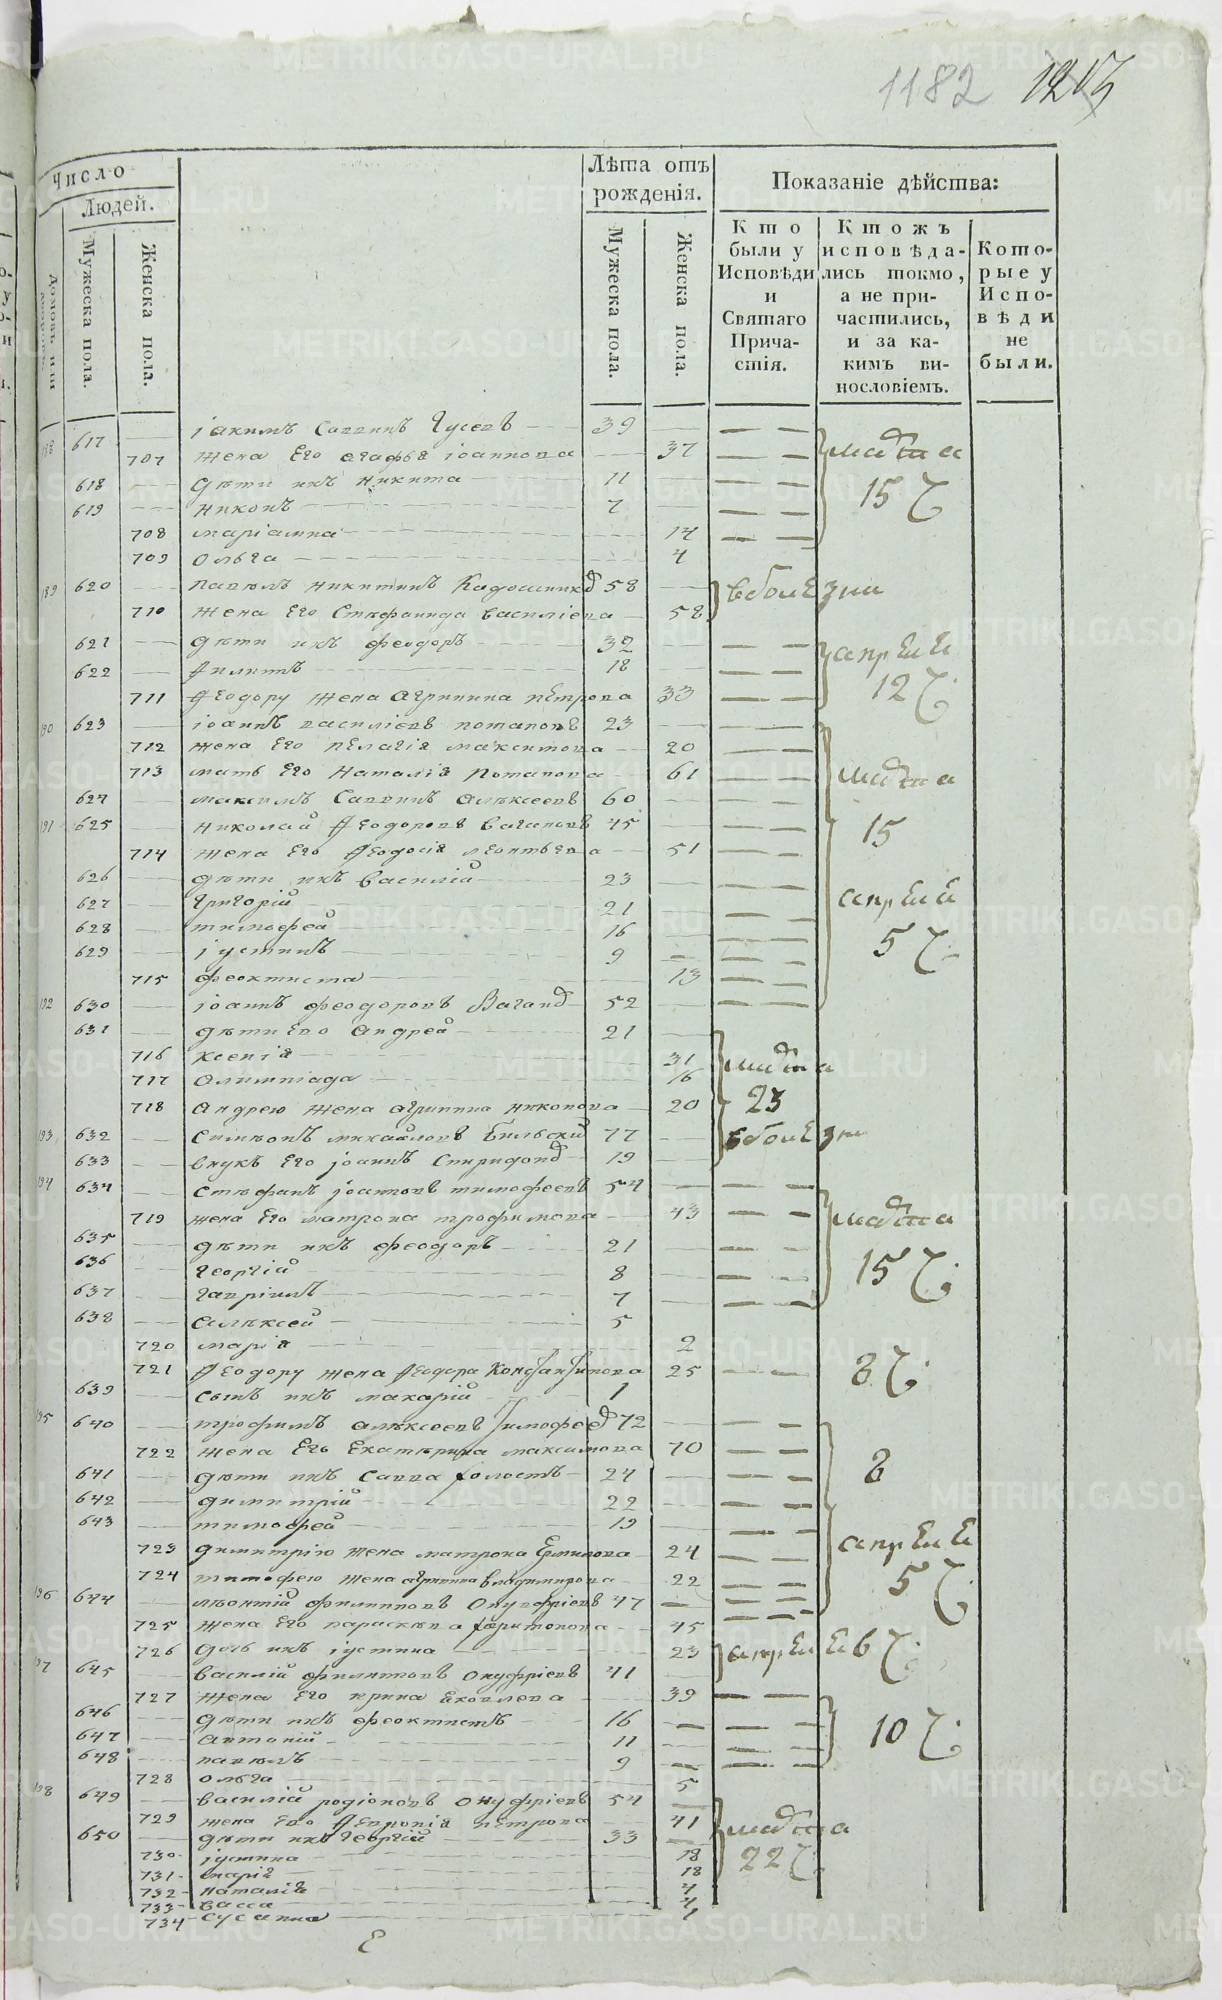 1182 1213
Число
Людей.
Лѣта отъ рожденія.
Показаніе дѣйства:
Мужеска пола.
Женска пола.
Мужеска пола.
Женска пола.
Кто были у Исповѣди и Святаго Причастія.
Ктожъ исповѣдались токмо, а не причастились, и за какимъ винословіемъ.
Которые у Исповѣди не были.
188 617 іакимъ Саввинъ Гусевъ 39
707 жена его агафья іоаннова 37 марта
618 дѣти ихъ никита 11 15 ч
619 никонъ 7
708 маріамна 14
709 Ольга 4
189 620 павелъ никитинъ 58 в болезни
710 жена его Стефанида василіева 58
621 дѣти ихъ феодоръ 32 апреля
622 филипъ 18 12 ч.
711 феодору жена агрипина петрова 33
190 623 іоаннъ василіевъ потаповъ 23
712 жена его пелагія максимова 20
713 мать его наталія потапова 61 марта
624 максимъ Саввинъ алексеевъ 60
191 625 николай феодоровъ вагановъ 45 15
714 жена его феодосія леонтьева 51
626 дѣти ихъ василій 23
627 григорій 21 апреля
628 тимофей 16
629 іустинъ 9 5 ч.
715 феоктиста 13
192 630 іоаннъ феодоровъ Ваганов 52
631 дѣти его андрей 21
716 ксенія 31 марта
717 олимпіада 16
718 андрею жена агрипина никонова 20 23
193 632 Симеонъ михайловъ бильский 77 в болезни
633 внукъ его іоаннъ Спиридонов 19
194 634 стефанъ іоанновъ тимофеевъ 54
719 жена его матрона трофимова 43 марта
635 дѣти ихъ феодоръ 21
636 георгій 8 15 ч.
637 гавріилъ 7
638 алексей 5
720 марія 2
721 феодору жена феодора Константинова 25 8 ч.
639 сынъ ихъ макарій 1
195 640 трофимъ алексеевъ Тимофеев 72
722 жена его екатерина максимова 70
641 дѣти ихъ Савва холостъ 24 8
642 димитрій 22
643 тимофей 19
723 димитрію жена матрона Ермилова 24 апреля
724 тимофею жена агрипина владимирова 22 5 ч.
196 644 леонтій филиповъ Онуфріевъ 47
725 жена его параскева харитонова 45
726 дочь ихъ іустина 23 апреля 8 ч.
197 645 василій филиповъ онуфріевъ 41
727 жена его ирина яковлева 39
646 дѣти ихъ феоктистъ 16
647 антоній 11 10 ч.
648 павелъ 9
728 ольга 5
198 649 василій родіоновъ онуфріевъ 54
729 жена его февронія петрова 41 марта
650 дѣти ихъ георгій 33
730 іустина 18 22 ч
731 марія 18
732 наталія 4
733 васса 4
734 сусанна
METRIKI.GASO-URAL.RU